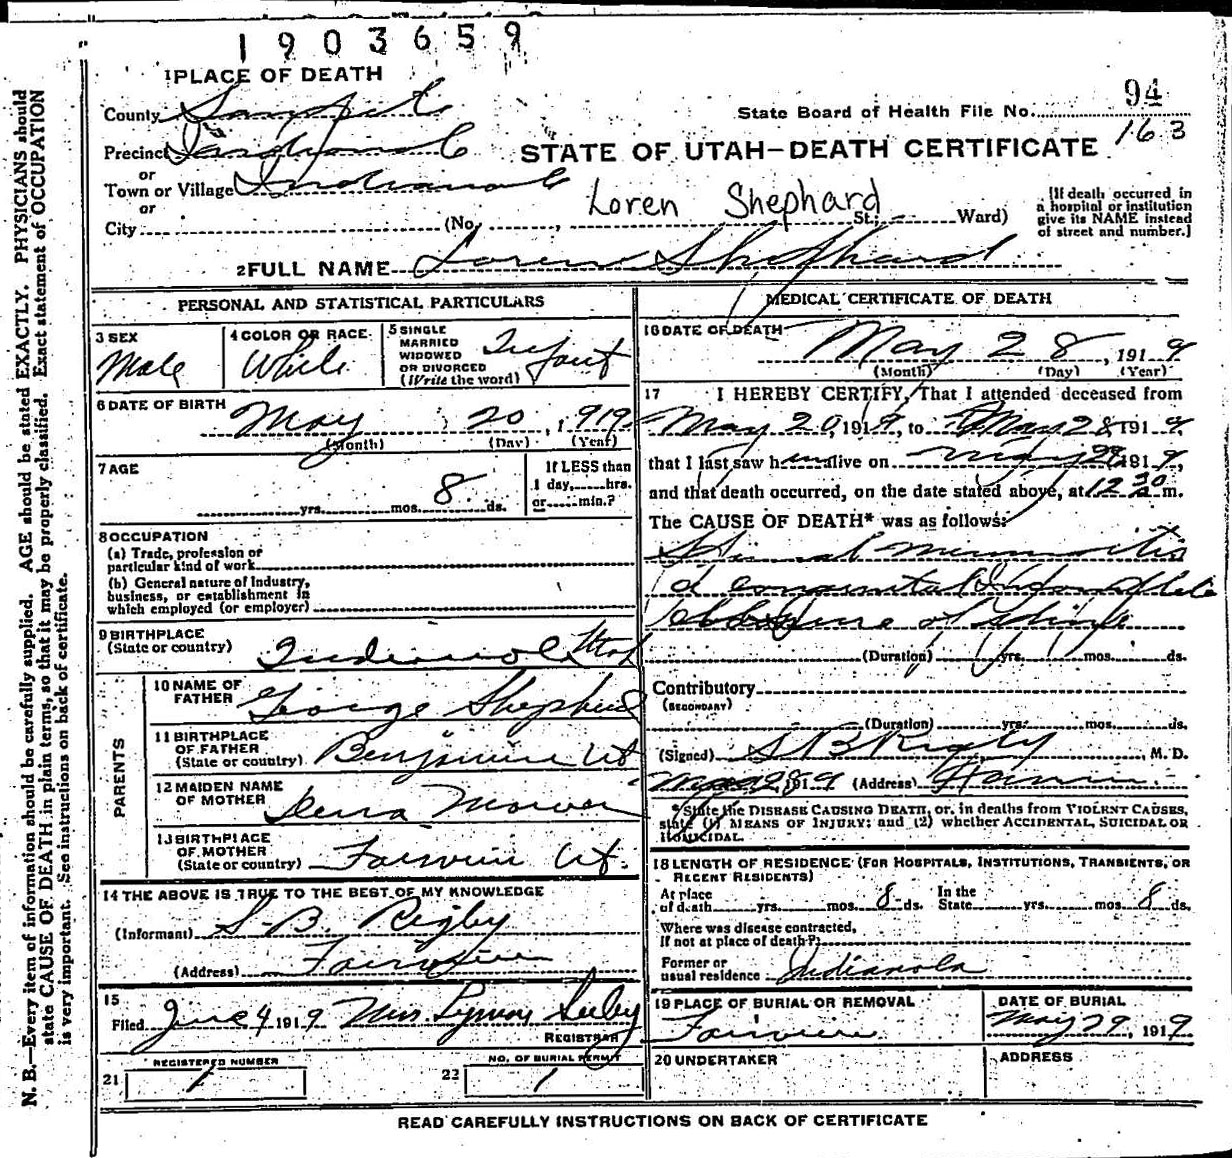 1903659
1 PLACE OF DEATH
94
County Sanpete
State Board of Health File No.
163
Precinct Indianola
STATE OF UTAH—DEATH CERTIFICATE
or
Town or Village Indianola
or
Loren Shephard
City (No. , St; Ward)
[If death occurred in
a hospital or institution
give its NAME instead
of street and number.]
2 FULL NAME Loren Shephard
PERSONAL AND STATISTICAL PARTICULARS
3 SEX
Male
4 COLOR OR RACE
White
5 SINGLE
MARRIED
WIDOWED
OR DIVORCED
(Write the word)
Infant
6 DATE OF BIRTH
May 20, 1919
(Month) (Day) (Year)
7 AGE
yrs. mos. 8 ds.
If LESS than
1 day, hrs.
or min.?
8 OCCUPATION
(a) Trade, profession or
particular kind of work
(b) General nature of Industry,
business, or establishment in
which employed (or employer)
9 BIRTHPLACE
(State or country)
Indianola Utah
PARENTS
10 NAME OF
FATHER
George Shepherd
11 BIRTHPLACE
OF FATHER
(State or country)
Benjamin Ut
12 MAIDEN NAME
OF MOTHER
Mower
13 BIRTHPLACE
OF MOTHER
(State or country)
Fairview Ut.
14 THE ABOVE IS TRUE TO THE BEST OF MY KNOWLEDGE
(Informant) S. B. Rigby
(Address) Fairview
15
Filed June 4 1919 Mrs. Lyman Seely
REGISTRAR
REGISTERED NUMBER
21 1
NO. OF BURIAL PERMIT
22 1
MEDICAL CERTIFICATE OF DEATH
16 DATE OF DEATH
May 28, 1919
(Month) (Day) (Year)
17 I HEREBY CERTIFY, That I attended deceased from
May 20, 1919, to May 28 1919,
that I last saw him alive on May 1919,
and that death occurred, on the date stated above, at 12 30 a m.
The CAUSE OF DEATH* was as follows:
Spinal meningitis
congenital incomplete
closure of spine
(Duration) yrs. mos. ds.
Contributory
(SECONDARY)
(Duration) yrs. mos. ds.
(Signed) S B Rigby, M. D.
May 28 1919 (Address) Fairview
*State the DISEASE CAUSING DEATH, or, in deaths from VIOLENT CAUSES,
state (1) MEANS OF INJURY; and (2) whether ACCIDENTAL, SUICIDAL OR
HOMICIDAL.
18 LENGTH OF RESIDENCE (FOR HOSPITALS, INSTITUTIONS, TRANSIENTS, OR
RECENT RESIDENTS)
At place
of death yrs. mos. 8 ds.
In the
State yrs. mos. 8 ds.
Where was disease contracted,
If not at place of death?
Former or
usual residence Indianola
19 PLACE OF BURIAL OR REMOVAL
Fairview
DATE OF BURIAL
May 29, 1919
20 UNDERTAKER
ADDRESS
READ CAREFULLY INSTRUCTIONS ON BACK OF CERTIFICATE
N. B.—Every item of information should be carefully supplied. AGE should be stated EXACTLY. PHYSICIANS should
state CAUSE OF DEATH in plain terms, so that it may be properly classified. Exact statement of OCCUPATION
is very important. See instructions on back of certificate.